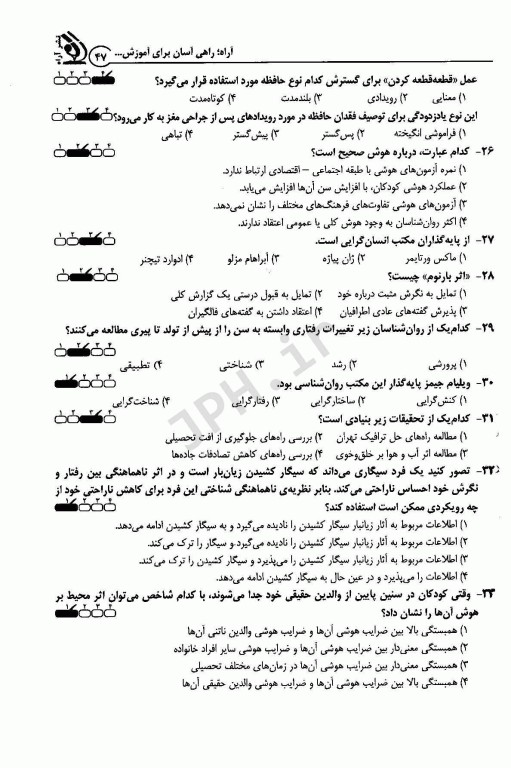 آراه؛ راهی آسان برای آموزش... ۴۷
عمل «قطعه‌قطعه کردن» برای گسترش کدام نوع حافظه مورد استفاده قرار می‌گیرد؟ ۱ ۲ ۳ ۴
۱) معنایی ۲) رویدادی ۳) بلندمدت ۴) کوتاه‌مدت
این نوع یادزدودگی برای توصیف فقدان حافظه در مورد رویدادهای پس از جراحی مغز به کار می‌رود؟ ۱ ۲ ۳ ۴
۱) فراموشی انگیخته ۲) پس‌گستر ۳) پیش‌گستر ۴) تباهی
۲۶- کدام عبارت، درباره هوش صحیح است؟ ۱ ۲ ۳ ۴
۱) نمره آزمون‌های هوشی با طبقه اجتماعی – اقتصادی ارتباط ندارد.
۲) عملکرد هوشی کودکان، با افزایش سن آن‌ها افزایش می‌یابد.
۳) آزمون‌های هوشی تفاوت‌های فرهنگ‌های مختلف را نشان نمی‌دهد.
۴) اکثر روان‌شناسان به وجود هوش کلی یا عمومی اعتقاد ندارند.
۲۷- از پایه‌گذاران مکتب انسان‌گرایی است. ۱ ۲ ۳ ۴
۱) ماکس ورتایمر ۲) ژان پیاژه ۳) آبراهام مزلو ۴) ادوارد تیچنر
۲۸- «اثر بارنوم» چیست؟ ۱ ۲ ۳ ۴
۱) تمایل به نگرش مثبت درباره خود ۲) تمایل به قبول درستی یک گزارش کلی
۳) پذیرش گفته‌های عادی اطرافیان ۴) اعتقاد داشتن به گفته‌های فالگیران
۲۹- کدام‌یک از روان‌شناسان زیر تغییرات رفتاری وابسته به سن را از پیش از تولد تا پیری مطالعه می‌کنند؟
۱ ۲ ۳ ۴
۱) پرورشی ۲) رشد ۳) شناختی ۴) تطبیقی
۳۰- ویلیام جیمز پایه‌گذار این مکتب روان‌شناسی بود. ۱ ۲ ۳ ۴
۱) کنش‌گرایی ۲) ساختارگرایی ۳) رفتارگرایی ۴) شناخت‌گرایی
۳۱- کدام‌یک از تحقیقات زیر بنیادی است؟ ۱ ۲ ۳ ۴
۱) مطالعه راه‌های حل ترافیک تهران ۲) بررسی راه‌های جلوگیری از افت تحصیلی
۳) مطالعه اثر آب و هوا بر خلق‌وخوی ۴) بررسی راه‌های کاهش تصادفات جاده‌ها
۳۲- تصور کنید یک فرد سیگاری می‌داند که سیگار کشیدن زیان‌بار است و در اثر ناهماهنگی بین رفتار و
نگرش خود احساس ناراحتی می‌کند. بنابر نظریه‌ی ناهماهنگی شناختی این فرد برای کاهش ناراحتی خود از
چه رویکردی ممکن است استفاده کند؟ ۱ ۲ ۳ ۴
۱) اطلاعات مربوط به آثار زیانبار سیگار کشیدن را نادیده می‌گیرد و به سیگار کشیدن ادامه می‌دهد.
۲) اطلاعات مربوط به آثار زیانبار سیگار کشیدن را نادیده می‌گیرد و سیگار را ترک می‌کند.
۳) اطلاعات مربوط به آثار زیانبار سیگار کشیدن را می‌پذیرد و سیگار کشیدن را ترک می‌کند.
۴) اطلاعات را می‌پذیرد و در عین حال به سیگار کشیدن ادامه می‌دهد.
۳۳- وقتی کودکان در سنین پایین از والدین حقیقی خود جدا می‌شوند، با کدام شاخص می‌توان اثر محیط بر
هوش آن‌ها را نشان داد؟ ۱ ۲ ۳ ۴
۱) همبستگی بالا بین ضرایب هوشی آن‌ها و ضرایب هوشی والدین ناتنی آن‌ها
۲) همبستگی معنی‌دار بین ضرایب هوشی آن‌ها و ضرایب هوشی سایر افراد خانواده
۳) همبستگی معنی‌دار بین ضرایب هوشی آن‌ها در زمان‌های مختلف تحصیلی
۴) همبستگی بالا بین ضرایب هوشی آن‌ها و ضرایب هوشی والدین حقیقی آن‌ها
JPH.ir